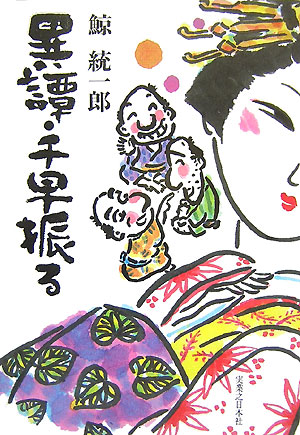 鯨統一郎
異譚・千早振る
実業之日本社